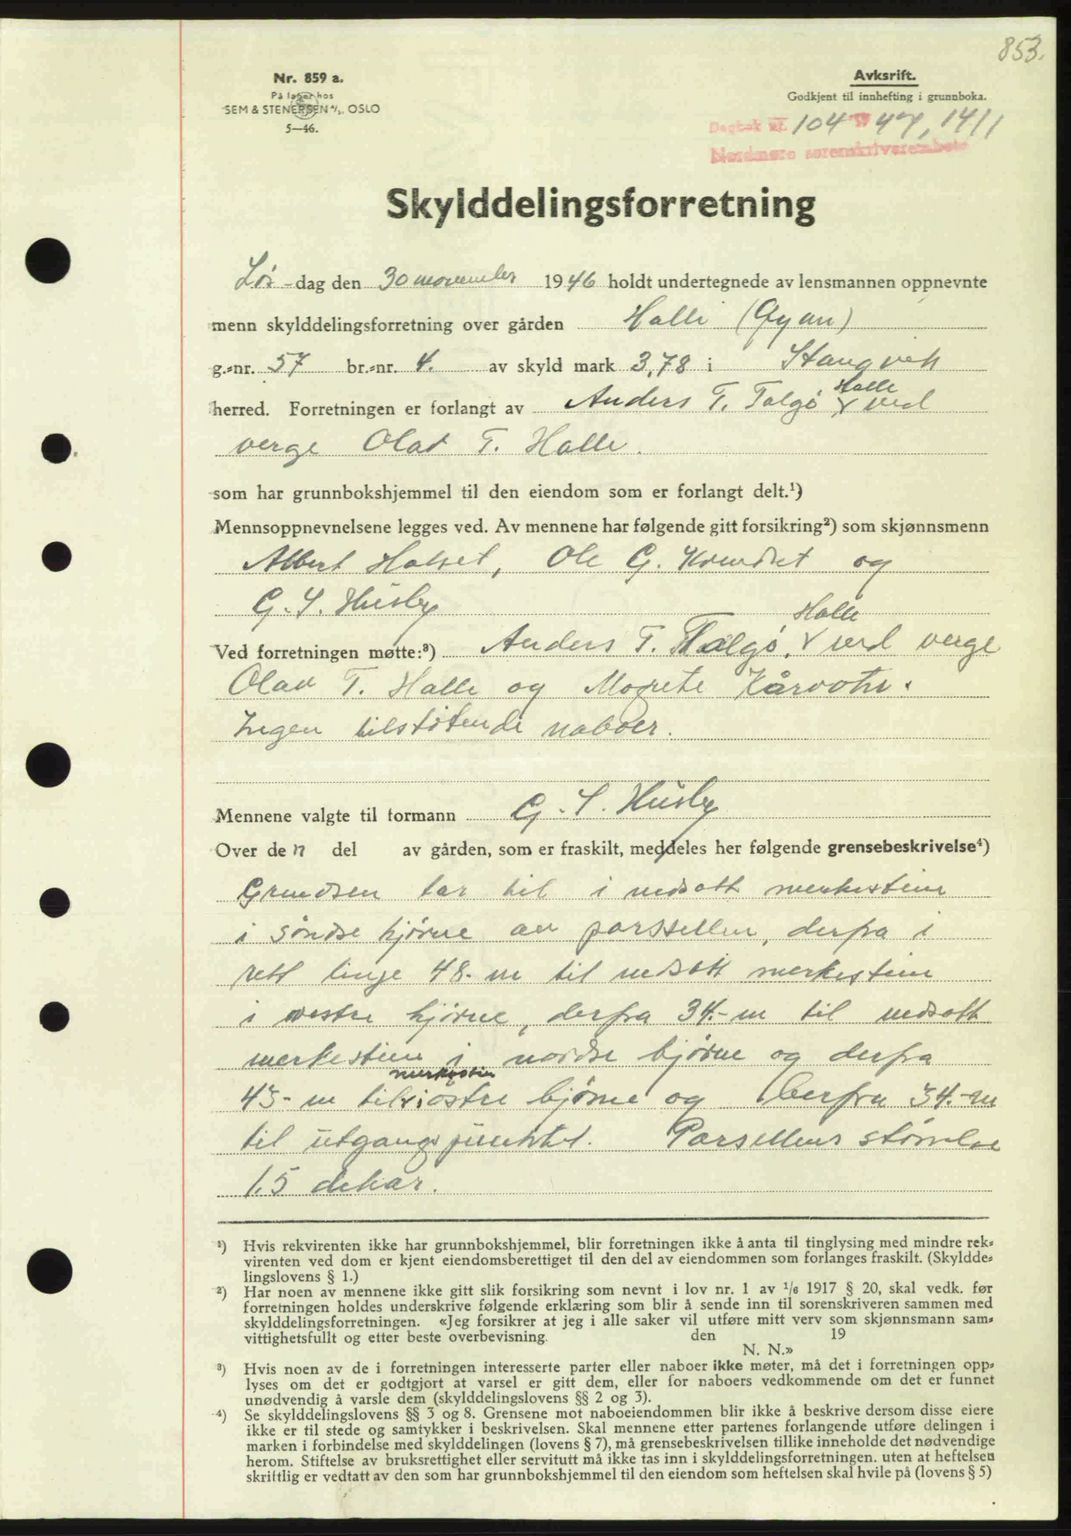 853.
Nr. 859 a.
På lager hos
SEM & STENERSEN A/S. OSLO
5—46.
Avskrift.
Godkjent til innhefting i grunnboka.
Dagbok nr. 104 19 47, 14/1
Nordmøre sorenskriverembete
Skylddelingsforretning
Lør-dag den 30 november 1946 holdt undertegnede av lensmannen oppnevnte
menn skylddelingsforretning over gården Halle (Øyan)
g.-nr. 57 br.-nr. 4. av skyld mark 3,78 i Stangvik
herred. Forretningen er forlangt av Anders T. Talgø Halle v ved
verge Olav T. Halle.
som har grunnbokshjemmel til den eiendom som er forlangt delt.¹)
Mennsoppnevnelsene legges ved. Av mennene har følgende gitt forsikring²) som skjønnsmenn
Albert Halset, Ole G. og
G. S. Husby
Ved forretningen møtte:³) Anders T. Talgø, Halle v ved verge
Olav T. Halle og Magrete Kårvatn.
Ingen tilstøtende naboer.
Mennene valgte til formann G. S. Husby
Over den del av gården, som er fraskilt, meddeles her følgende grensebeskrivelse⁴)
Grendsen tar til i nedsatt merkestein
i søndre hjørne av parsellen, derfra i
rett linje 48.-m til nedsatt merkestein
i vestre hjørne, derfra 34.-m til nedsatt
merkestein i nordre hjørne og derfra
43-m til merkestein v i østre hjørne og derfra 34.-m
til utgangspunktet. Parsellens størrelse
1.5 dekar.
¹) Hvis rekvirenten ikke har grunnbokshjemmel, blir forretningen ikke å anta til tinglysing med mindre rek-
virenten ved dom er kjent eiendomsberettiget til den del av eiendommen som forlanges fraskilt. (Skyldde-
lingslovens § 1.)
²) Har noen av mennene ikke gitt slik forsikring som nevnt i lov nr. 1 av 1/6 1917 § 20, skal vedk. før
forretningen holdes underskrive følgende erklæring som blir å sende inn til sorenskriveren sammen med
skylddelingsforretningen. «Jeg forsikrer at jeg i alle saker vil utføre mitt verv som skjønnsmann sam-
vittighetsfullt og etter beste overbevisning. den 19
N. N.»
³) Hvis noen av de i forretningen interesserte parter eller naboer ikke møter, må det i forretningen opp-
lyses om det er godtgjort at varsel er gitt dem, eller for naboers vedkommende om det er funnet
unødvendig å varsle dem (skylddelingslovens §§ 2 og 3).
⁴) Se skylddelingslovens §§ 3 og 8. Grensene mot naboeiendommen blir ikke å beskrive dersom disse eiere
ikke er til stede og samtykker i beskrivelsen. Skal mennene etter partenes forlangende utføre delingen i
marken i forbindelse med skylddelingen (lovens § 7), må grensebeskrivelsen tillike inneholde det nødvendige
herom. Stiftelse av bruksrettighet eller servitutt må ikke tas inn i skylddelingsforretningen. uten at heftelsen
skriftlig er vedtatt av den som har grunnbokshjemmel til den eiendom som heftelsen skal hvile på (lovens § 5)